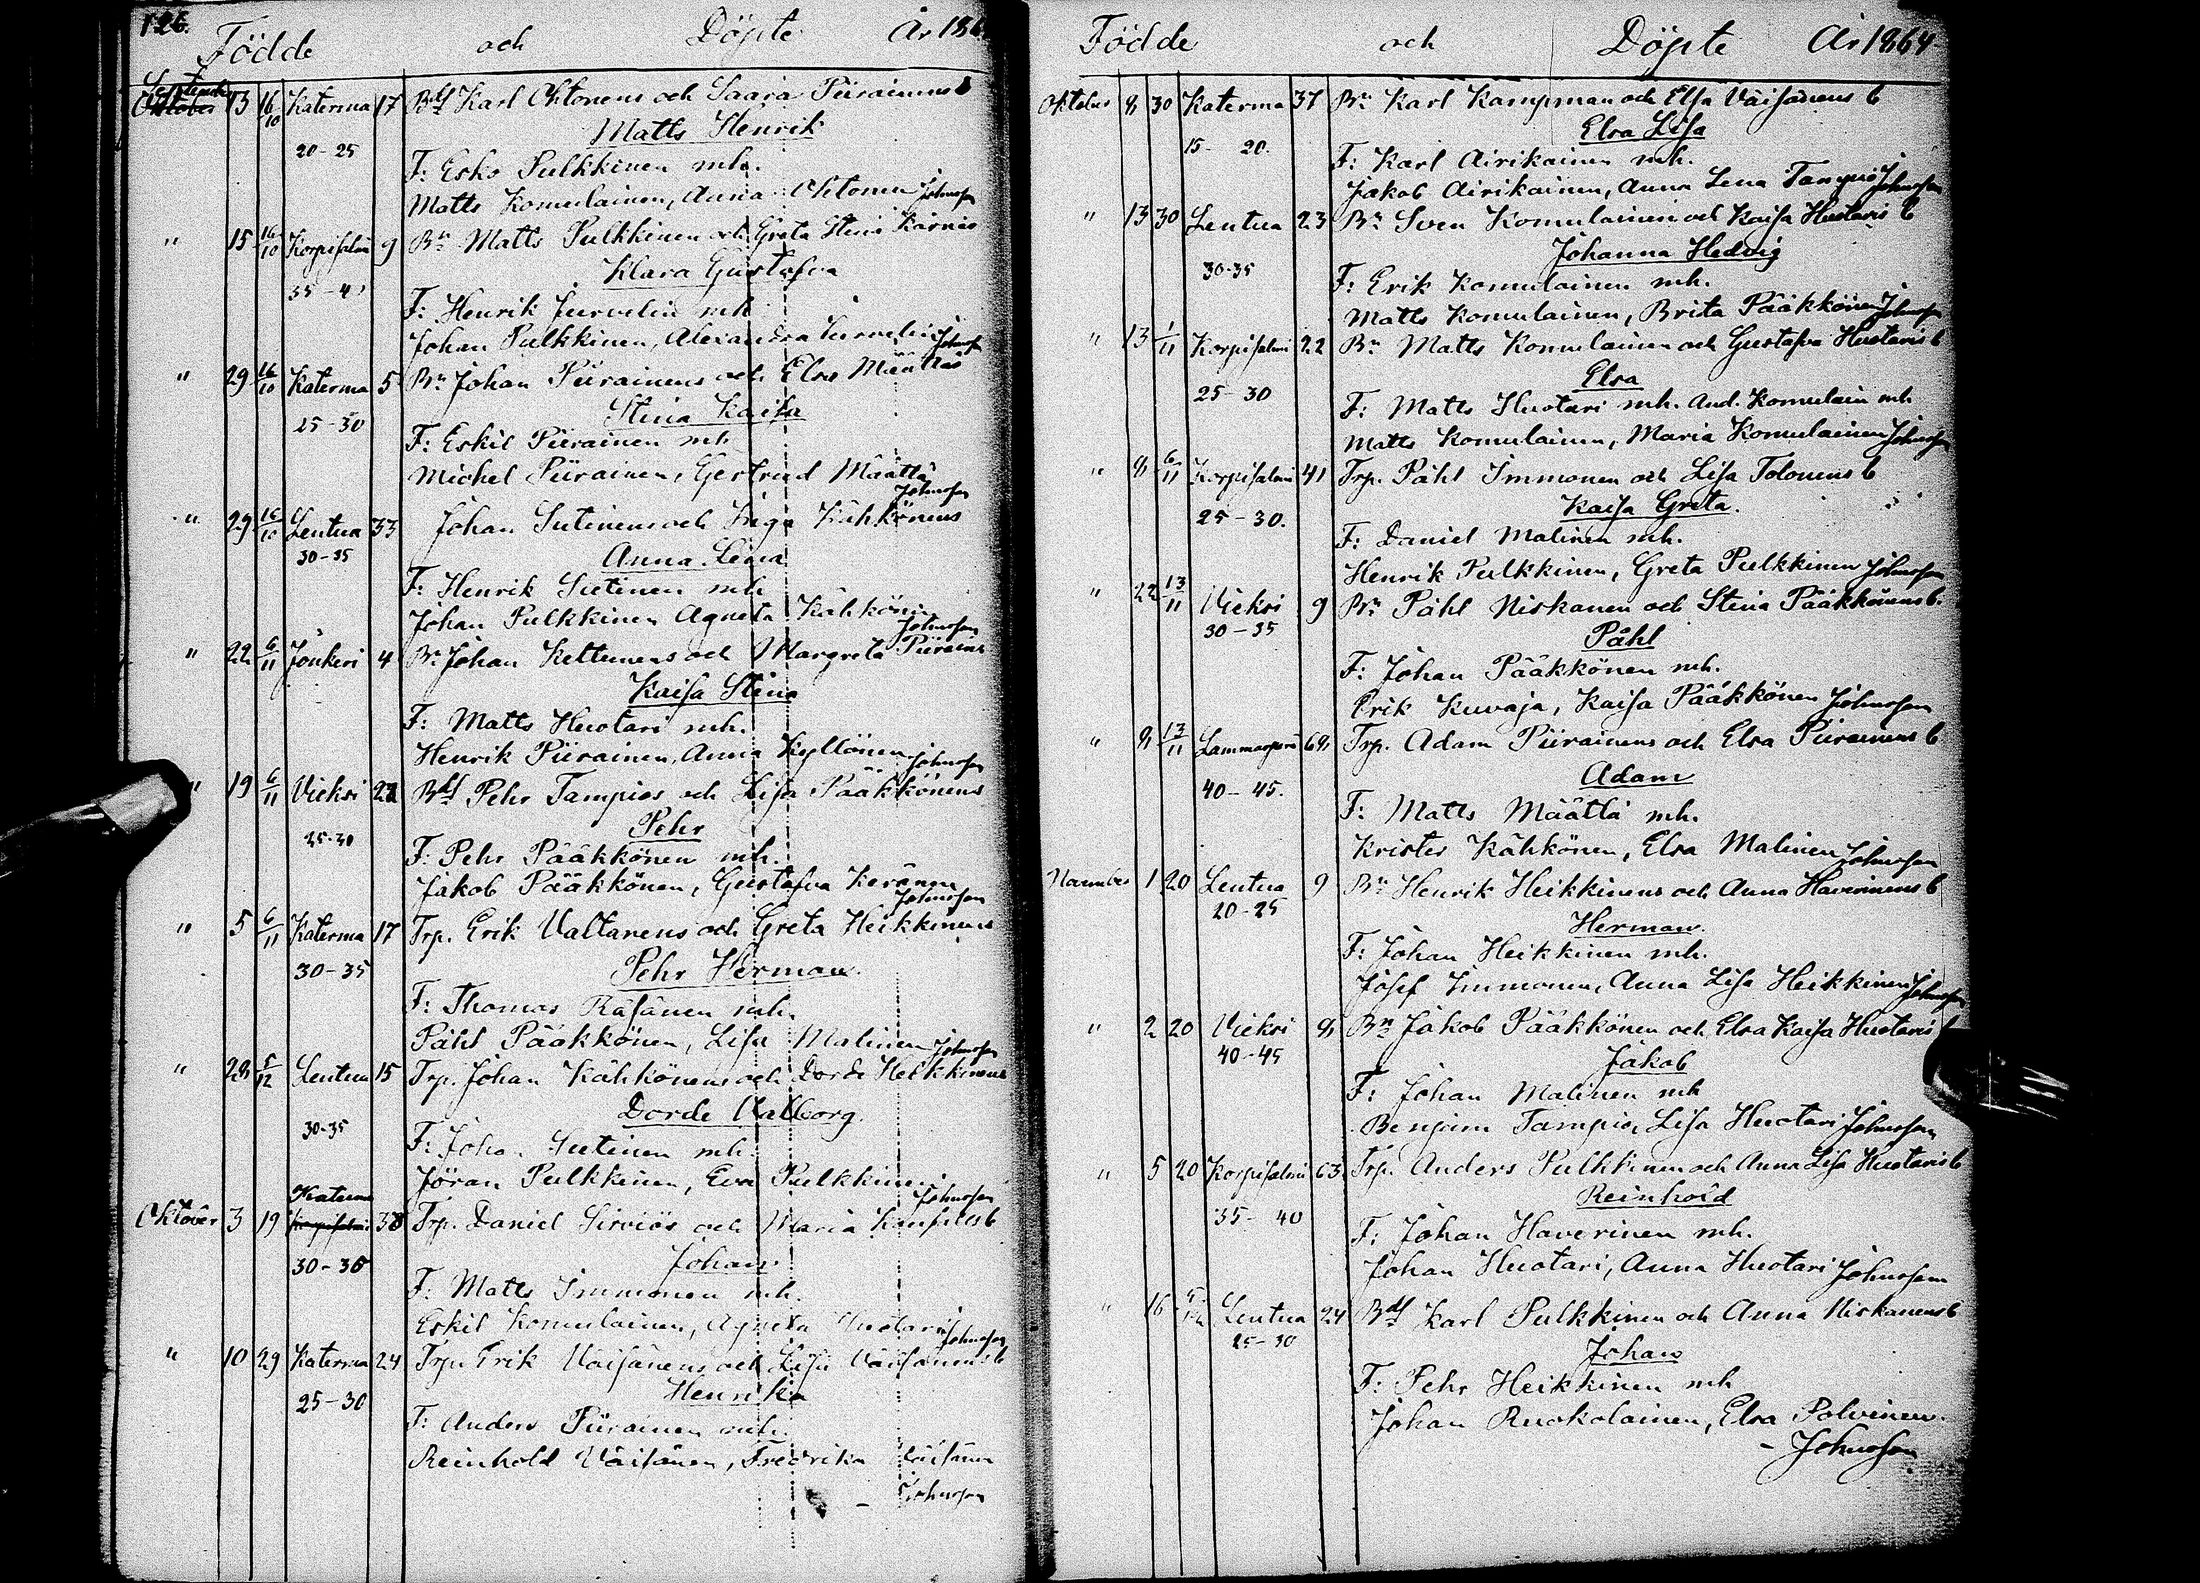 126.
Födde och Döpte År 186
Septemb
Oktober 13 16/10 Katerma 17 Bdf Karl Ohtonens och Saara Piirainens b
Matts Henrik
20-25
F: Esko Pulkkinen mh.
Matts Komulainen, Anna Ohtonen Johnsson
" 15 16/10 Korpisalmi 9 Bn Matts Pulkkinen och Greta Stina Kärnäs
Klara Gustafva
35-4
F: Henrik Jurvelin mh
Johan Pulkkinen, Alexandra Jurvelin Johnsson
" 29 16/10 Katerma 5 Bn Johan Piirainens och Elsa Määttäs
Stina Kaisa
25-30
F: Eskil Piirainen mh
Michel Piirainen, Gertrud Määttä
Johnsson
" 29 16/10 Lentua 33 Johan Sutinens och Inga Kähkönens
30-35
Anna Lena
F: Henrik Sutinen mh
Johan Pulkkinen Agneta Kähkönen
Johnsson
" 22 6/11 Jonkeri 4 Bn Johan Kettunens och Margreta Piirains
Kaisa Stina
F: Matts Huotari mh.
Henrik Piirainen, Anna Kyllönen Johnsson
" 19 6/11 Vieksi 22 Bdf Pehr Tampios och Lisa Pääkkönens
Pehr
25-30
F: Pehr Pääkkönen mh.
Jakob Pääkkönen, Gustafva Keränen
Johnsson
" 5 6/11 Katerma 17 Trp. Erik Valtanens och Greta Heikkinens
30-35
Pehr Herman.
F: Thomas Räsänen mh.
Påhl Pääkkönen, Lisa Malinen Johnsson
" 28 5/12 Lentua 15 Trp. Johan Kähkönens och Dorde Heikkinens
Dorde Valborg.
30-35
F: Johan Sutinen mh.
Jöran Pulkkinen, Eva Pulkkinen
Johnsson
Katerma
Oktober 3 19 Korpisalmi 38 Trp. Daniel Sirviös och Maria Kanfiles b
Johan
30-35
F: Matts Immonen mh.
Eskil Komulainen, Agneta Huotari Johnsson
" 10 29 Katerma 24 Trp. Erik Väisänens och Lisa Väisänens b
Henrika
25-30
F: Anders Piirainen mh.
Reinhold Väisänen, Fredrika Väisänen
- Johnsson
Födde och Döpte År 1864
Oktober 8 30 Katerma 37 Bn Karl Kampman och Elsa Väisänens b
Elsa Lisa
15-20.
F: Karl Airikainen mh.
Jakob Airikainen, Anna Lena Tampio Johnsson
" 13 30 Lentua 23 Bn Sven Komulainen och Kaisa Huotaris b
Johanna Hedvig
30-35
F: Erik Komulainen mh.
Matts Komulainen, Brita Pääkkönen Johnsson
" 13 1/11 Korpisalmi 22 Bn Matts Komulainen och Gustafva Huotaris b
Elsa
25-30
F: Matts Huotari mh. And. Komulain mh
Matts Komulainen, Maria Komulainen Johnsson
" 8 6/11 Korpisalmi 41 Trp. Påhl Immonen och Lisa Tolonens b
Kaisa Greta.
25-30.
F: Daniel Malinen mh.
Henrik Pulkkinen, Greta Pulkkinen Johnsson
" 22 13/11 Vieksi 9 Bn Påhl Niskanen och Stina Pääkkönens b.
30-35
Påhl
F: Johan Pääkkönen mh.
Erik Kuvaja, Kaisa Pääkkönen Johnsson
" 8 13/11 Lammasperä 68 Trp. Adam Piirainens och Elsa Piirainens b
Adam
40-45.
F: Matts Määttä mh.
Krister Kähkönen, Elsa Malinen Johnsson
November 1 20 Lentua 9 Bn Henrik Heikkinens och Anna Haverinens b
20-25
Herman.
F: Johan Heikkinen mh.
Josef Immonen, Anna Lisa Heikkinen Johnsson
" 2 20 Vieksi 8 Bn Jakob Pääkkönen och Elsa Kaisa Huotaris b
40-45
Jakob
F: Johan Malinen mh
Benjam Tampio, Lisa Huotari Johnsson
" 5 20 Korpisalmi 63 Trp. Anders Pulkkinen och Anna Lisa Huotaris b
Reinhold
35-40
F: Johan Haverinen mh.
Johan Huotari, Anna Huotari Johnsson
" 16 5/12 Lentua 24 Bdf Karl Pulkkinen och Anna Niskanens b
25-30
Johan
F: Pehr Heikkinen mh
Johan Ruokolainen, Elsa Polvinen.
- Johnsson